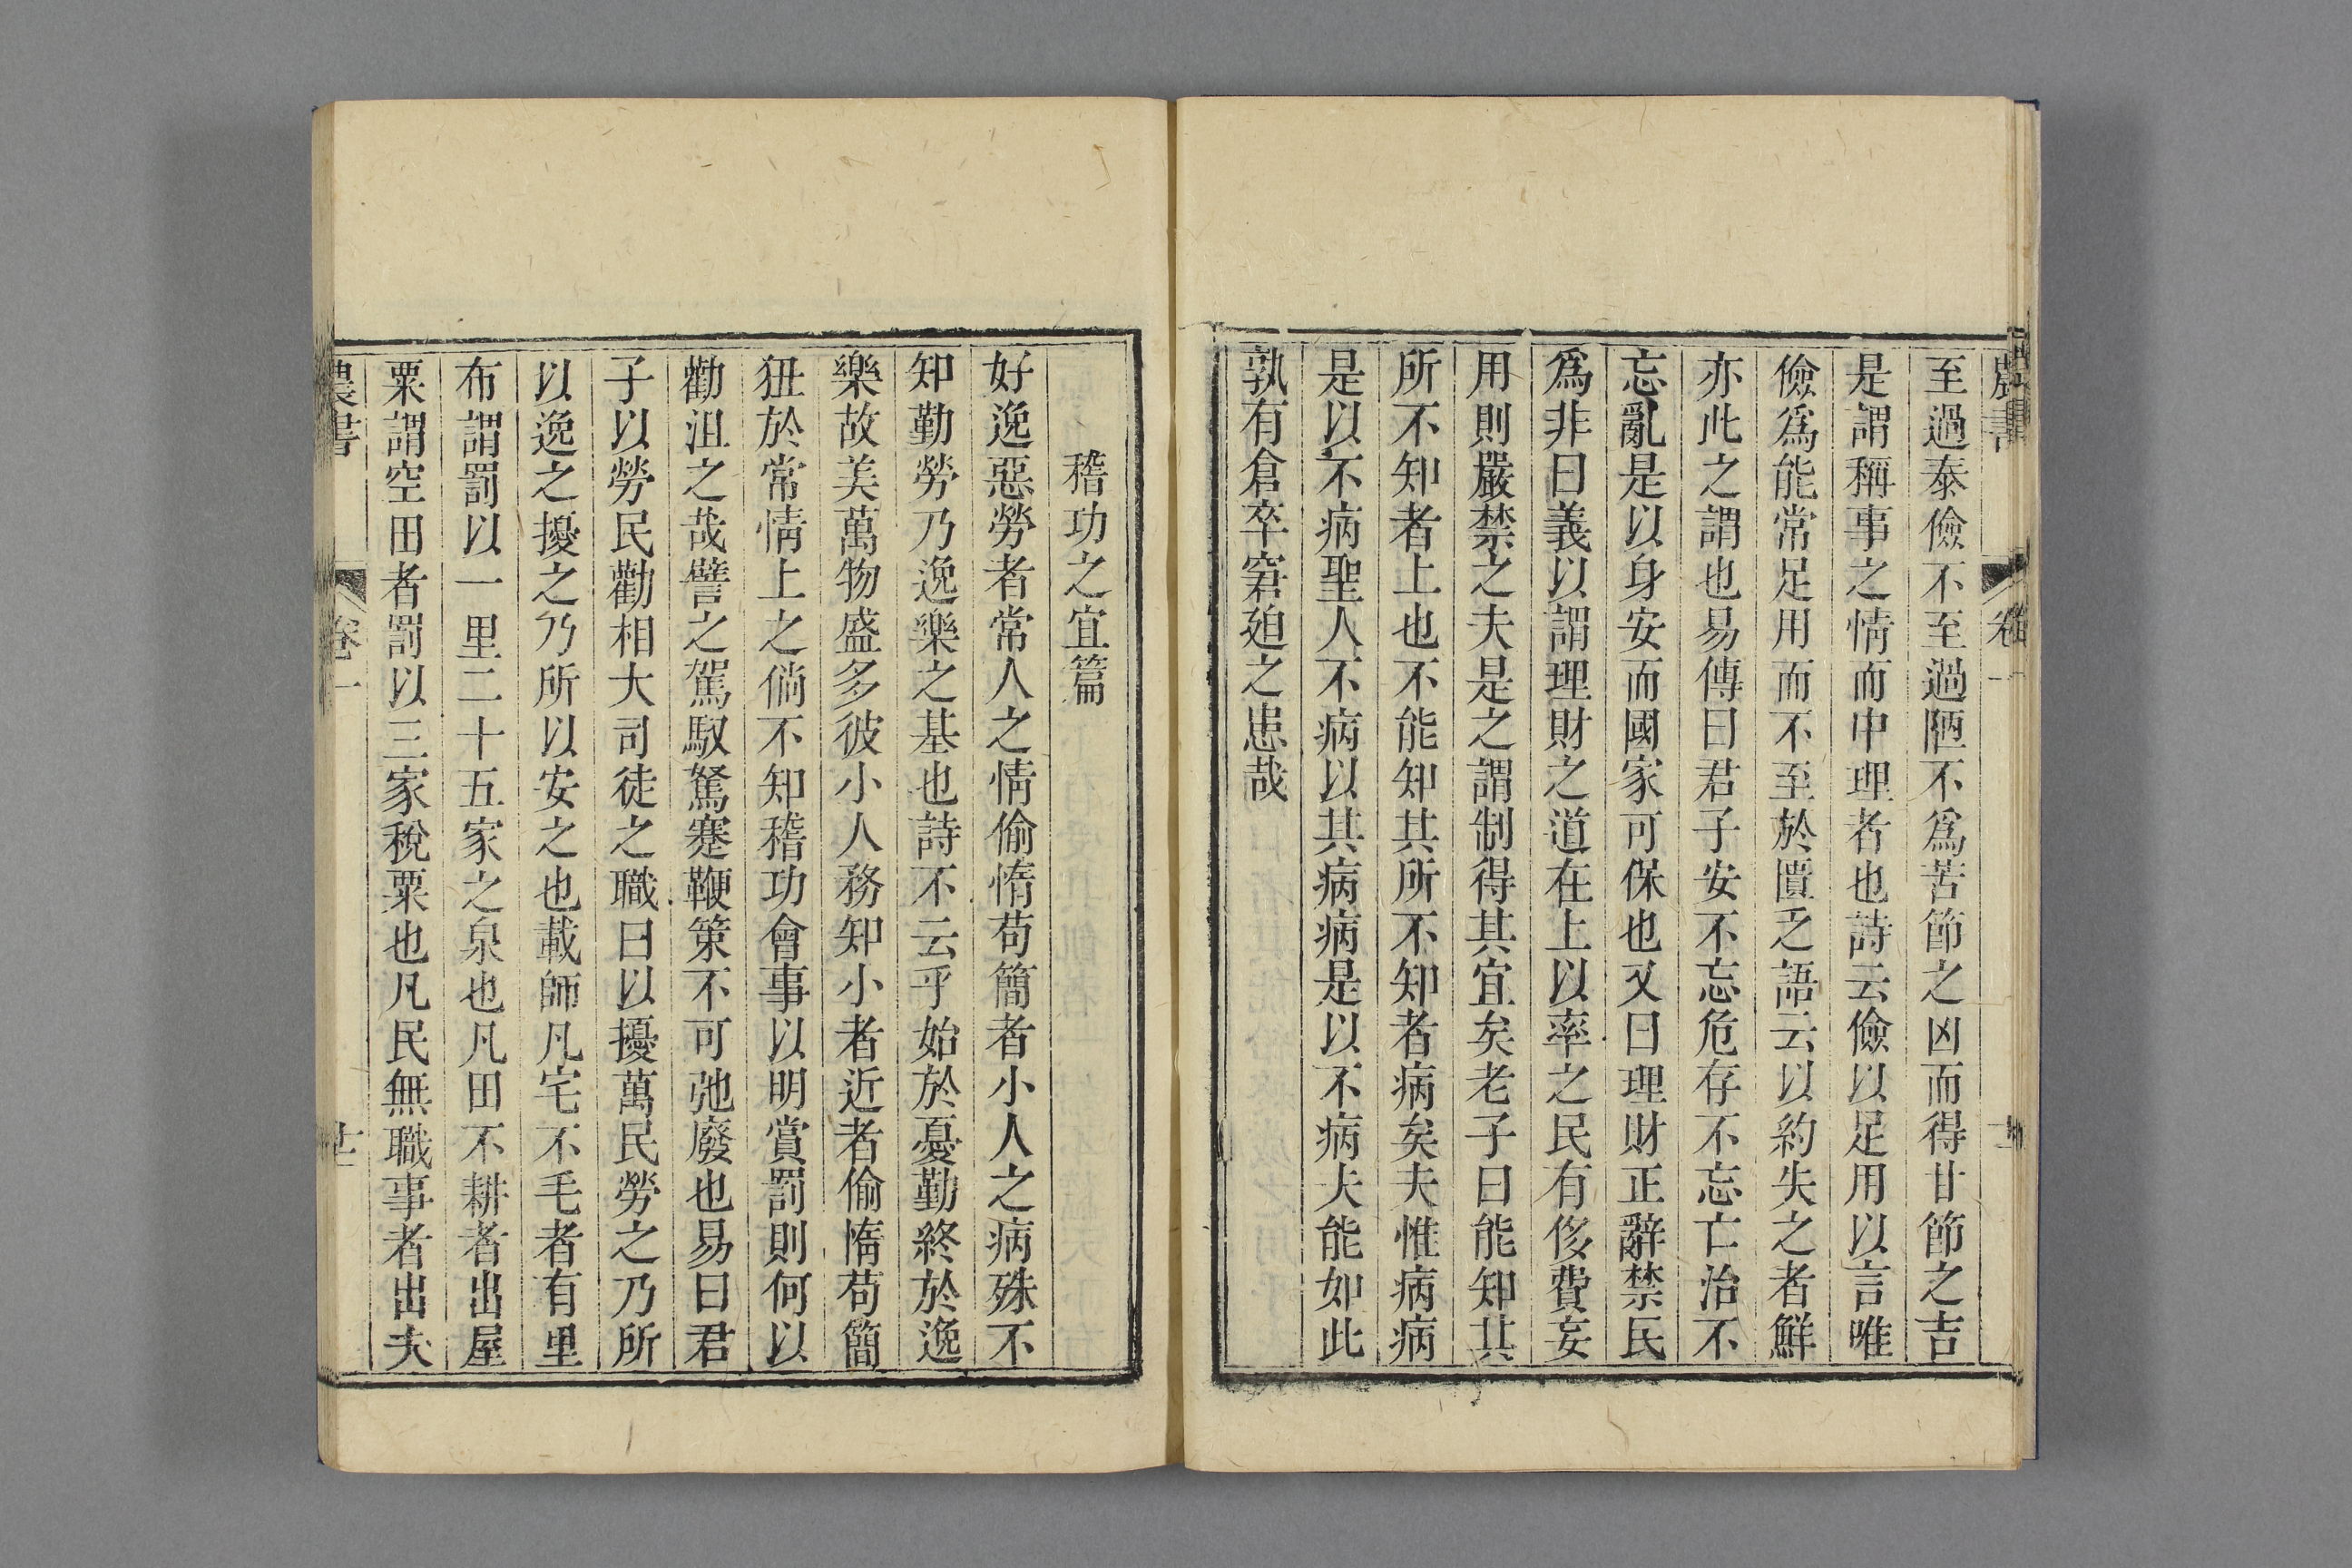 農書
卷一
至過泰儉不至過陋不爲苦節之凶而得甘節之吉
是謂稱事之情而中理者也詩云儉以足用以言唯
儉爲能常足用而不至於匱乏語云以約失之者鮮
亦此之謂也易傳曰君子安不忘危存不忘亡治不
忘亂是以身安而國家可保也又曰理財正辭禁民
爲非曰義以謂理財之道在上以率之民有侈費妄
用則嚴禁之夫是之謂制得其宜矣老子曰能知其
所不知者上也不能知其所不知者病矣夫惟病病
是以不病聖人不病以其病病是以不病夫能如此
孰有倉卒窘廹之患哉
稽功之宜篇
好逸惡勞者常人之情偷惰苟簡者小人之病殊不
知勤勞乃逸樂之基也詩不云乎始於憂勤終於逸
樂故美萬物盛多彼小人務知小者近者偷惰苟簡
狃於常情上之倘不知稽功會事以明賞罰則何以
勸沮之哉譬之駕馭駑蹇鞭策不可弛廢也易曰君
子以勞民勸相大司徒之職曰以擾萬民勞之乃所
以逸之擾之乃所以安之也載師凡宅不毛者有里
布謂罰以一里二十五家之泉也凡田不耕者出屋
粟謂空田者罰以三家稅粟也凡民無職事者出夫
農書
卷一